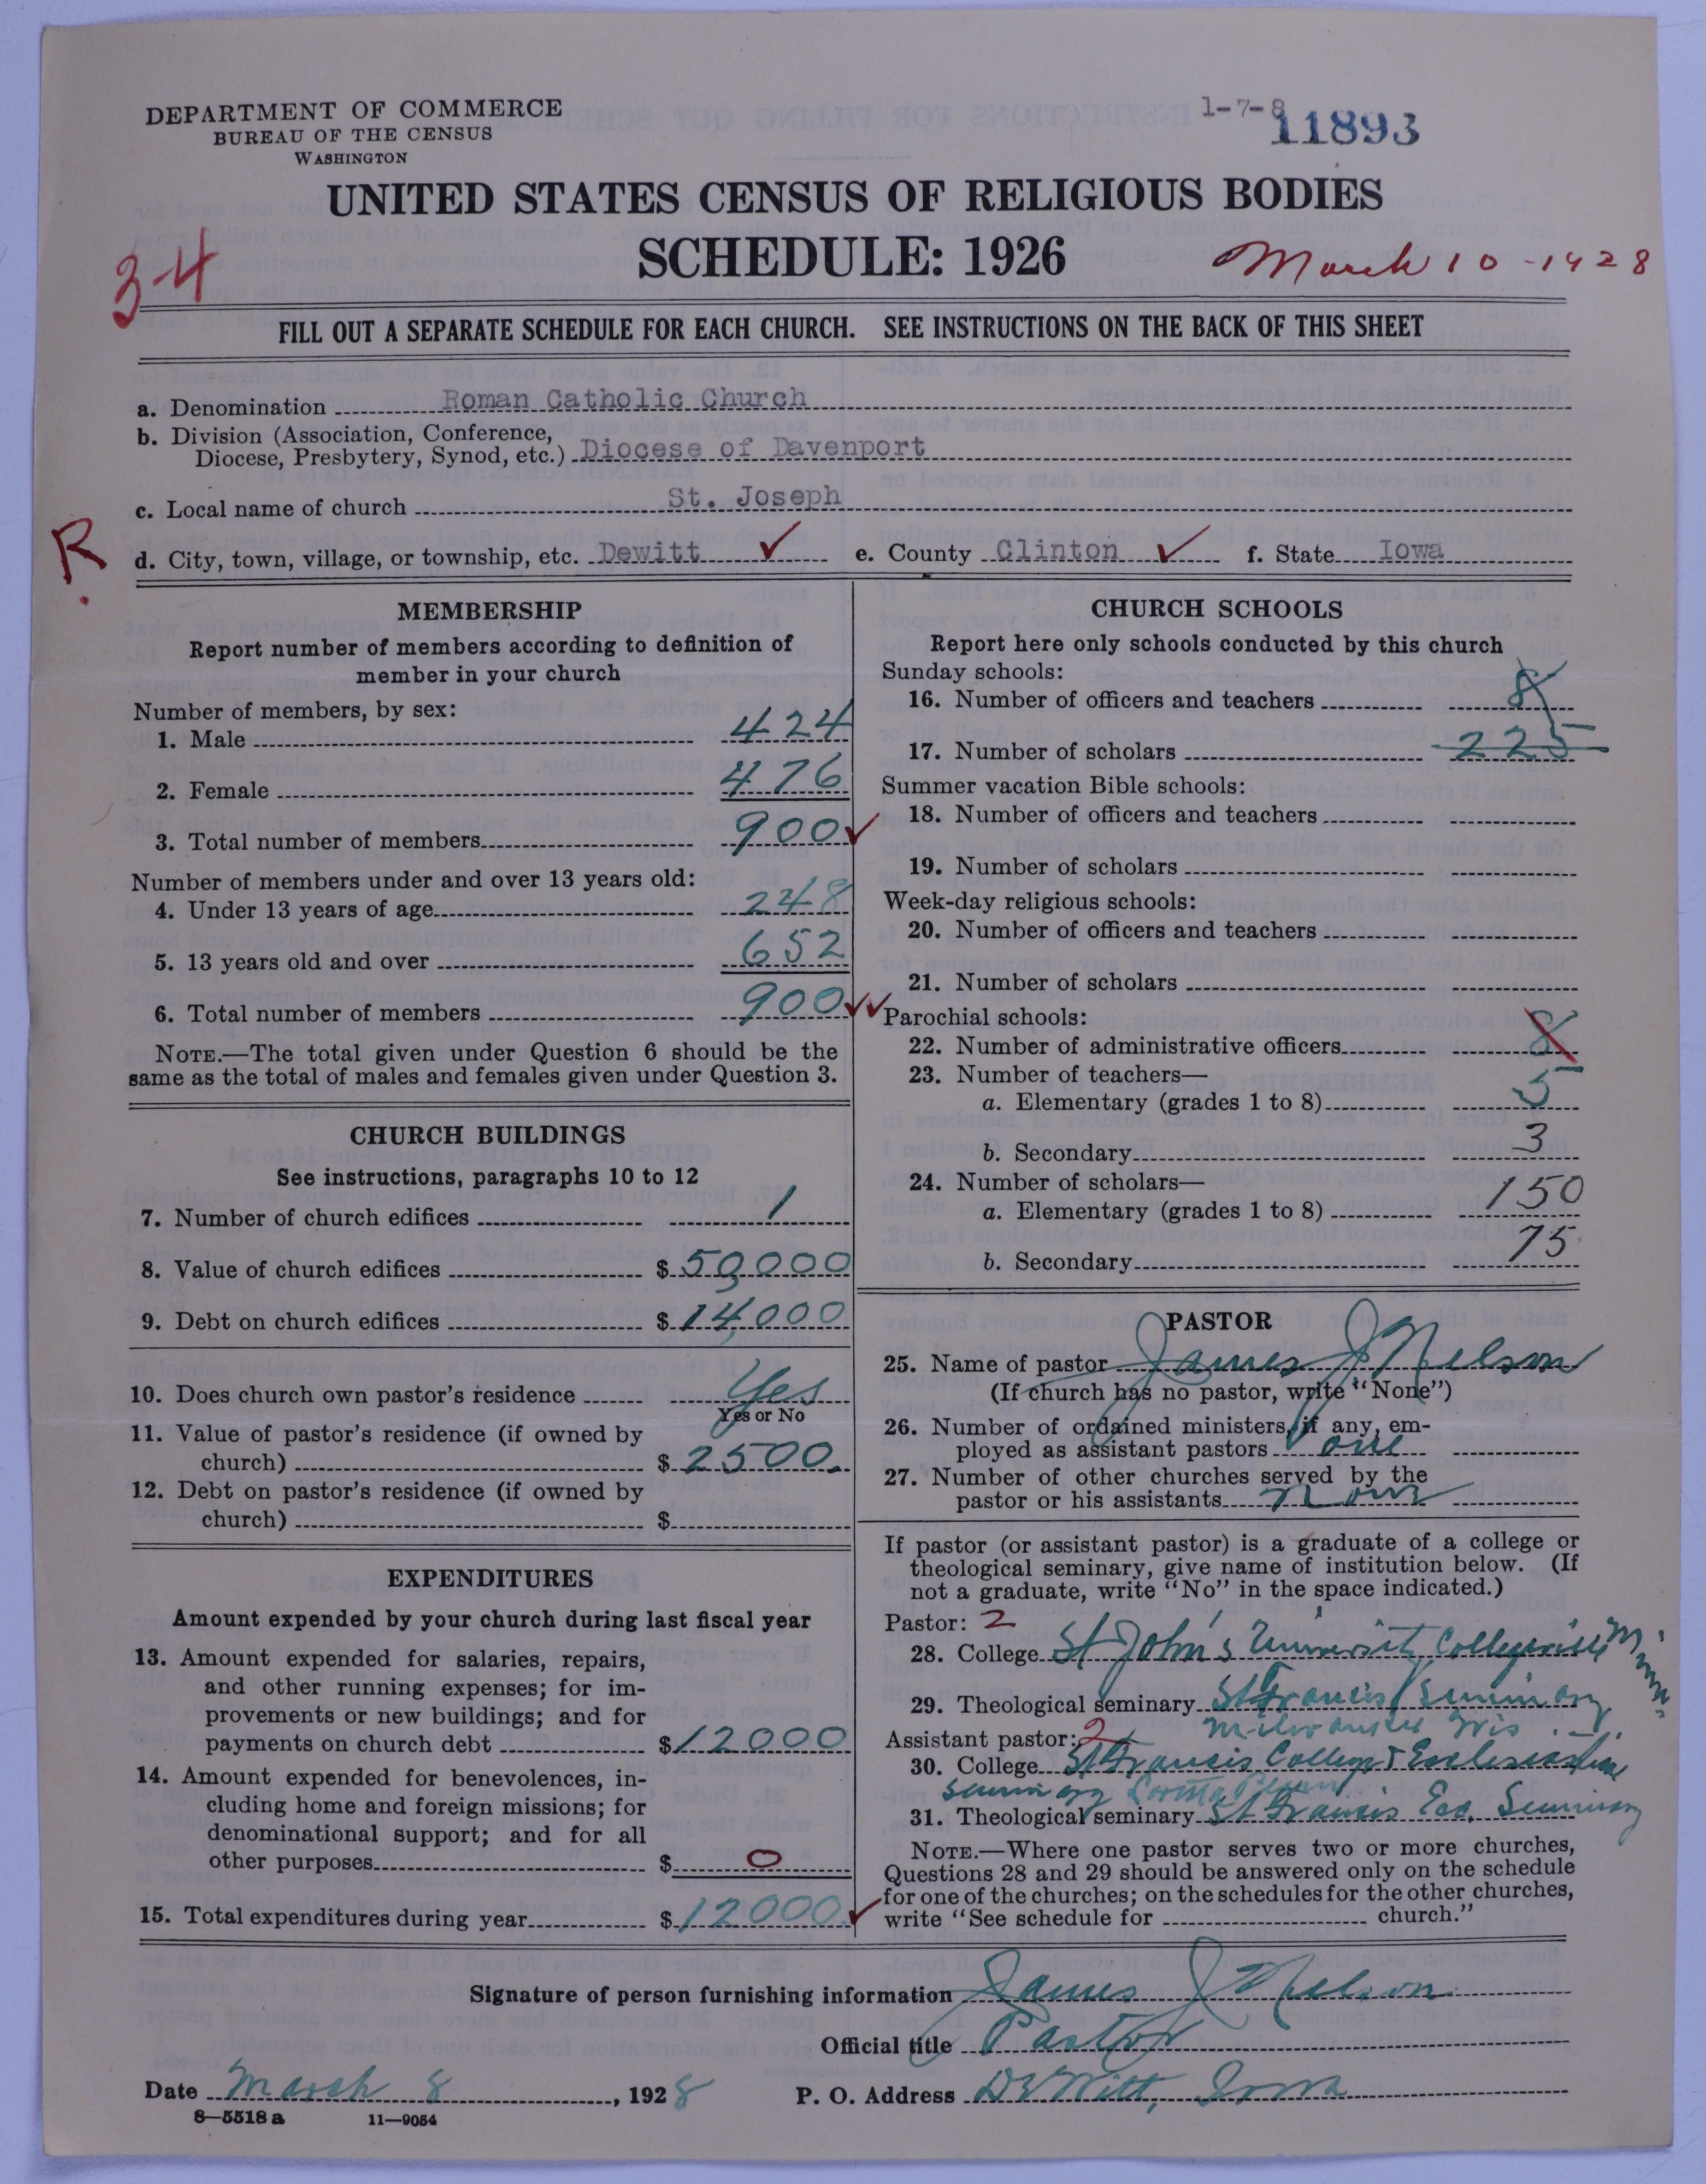 DEPARTMENT OF COMMERCE
BUREAU OF THE CENSUS
WASHINGTON
1-7-8
11893
UNITED STATES CENSUS OF RELIGIOUS BODIES
SCHEDULE: 1926
March 10-1928
34
FILL OUT A SEPARATE SCHEDULE FOR EACH CHURCH. SEE INSTRUCTIONS ON THE BACK OF THIS SHEET
a. Denomination Roman Catholic Church
b. Division (Association, Conference,
Diocese, Presbytery, Synod, etc.) Diocese of Davenport
c. Local name of church St. Joseph
R.
d. City, town, village, or township, etc. Dewitt ✓ e. County Clinton ✓ f. State Iowa
MEMBERSHIP
Report number of members according to definition of
member in your church
Number of members, by sex:
1. Male 424
2. Female 476
3. Total number of members 900 ✓
Number of members under and over 13 years old:
4. Under 13 years of age 248
5. 13 years old and over 652
6. Total number of members 900 ✓✓
NOTE.—The total given under Question 6 should be the
same as the total of males and females given under Question 3.
CHURCH BUILDINGS
See instructions, paragraphs 10 to 12
7. Number of church edifices 1
8. Value of church edifices $ 50,000
9. Debt on church edifices $ 14,000
10. Does church own pastor's residence Yes
Yes or No
11. Value of pastor's residence (if owned by
church) $ 2500.
12. Debt on pastor's residence (if owned by
church) $
EXPENDITURES
Amount expended by your church during last fiscal year
13. Amount expended for salaries, repairs,
and other running expenses; for im-
provements or new buildings; and for
payments on church debt $ 12000
14. Amount expended for benevolences, in-
cluding home and foreign missions; for
denominational support; and for all
other purposes $ 0
15. Total expenditures during year $ 12000. ✓
CHURCH SCHOOLS
Report here only schools conducted by this church
Sunday schools:
16. Number of officers and teachers 8
17. Number of scholars 225
Summer vacation Bible schools:
18. Number of officers and teachers
19. Number of scholars
Week-day religious schools:
20. Number of officers and teachers
21. Number of scholars
Parochial schools:
22. Number of administrative officers 8
23. Number of teachers—
a. Elementary (grades 1 to 8) 5
b. Secondary 3
24. Number of scholars—
a. Elementary (grades 1 to 8) 150
b. Secondary 75
PASTOR
25. Name of pastor James J Nelson
(If church has no pastor, write "None")
26. Number of ordained ministers, if any, em-
ployed as assistant pastors one
27. Number of other churches served by the
pastor or his assistants None
If pastor (or assistant pastor) is a graduate of a college or
theological seminary, give name of institution below. (If
not a graduate, write "No" in the space indicated.)
Pastor: 2
28. College St John's University Collegeville Minn.
29. Theological seminary St Francis Seminary
Milwaukee Wis.
Assistant pastor: 2
30. College St Francis College & Ecclesiastical
Seminary
31. Theological seminary St Francis Ecc. Seminary
NOTE.—Where one pastor serves two or more churches,
Questions 28 and 29 should be answered only on the schedule
for one of the churches; on the schedules for the other churches,
write "See schedule for church."
Signature of person furnishing information James J Nelson
Official title Pastor
Date March 8, 1928 P. O. Address DeWitt, Iowa
8—5518 a 11—9054